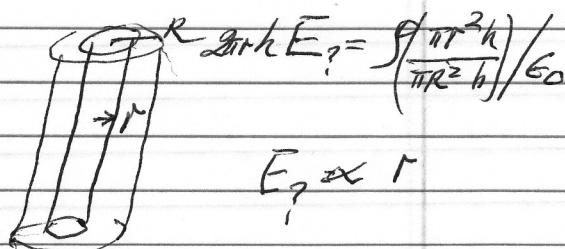 R 2πrh E? = ρ(πr²h / πR²h) / ε₀
r
E? ∝ r